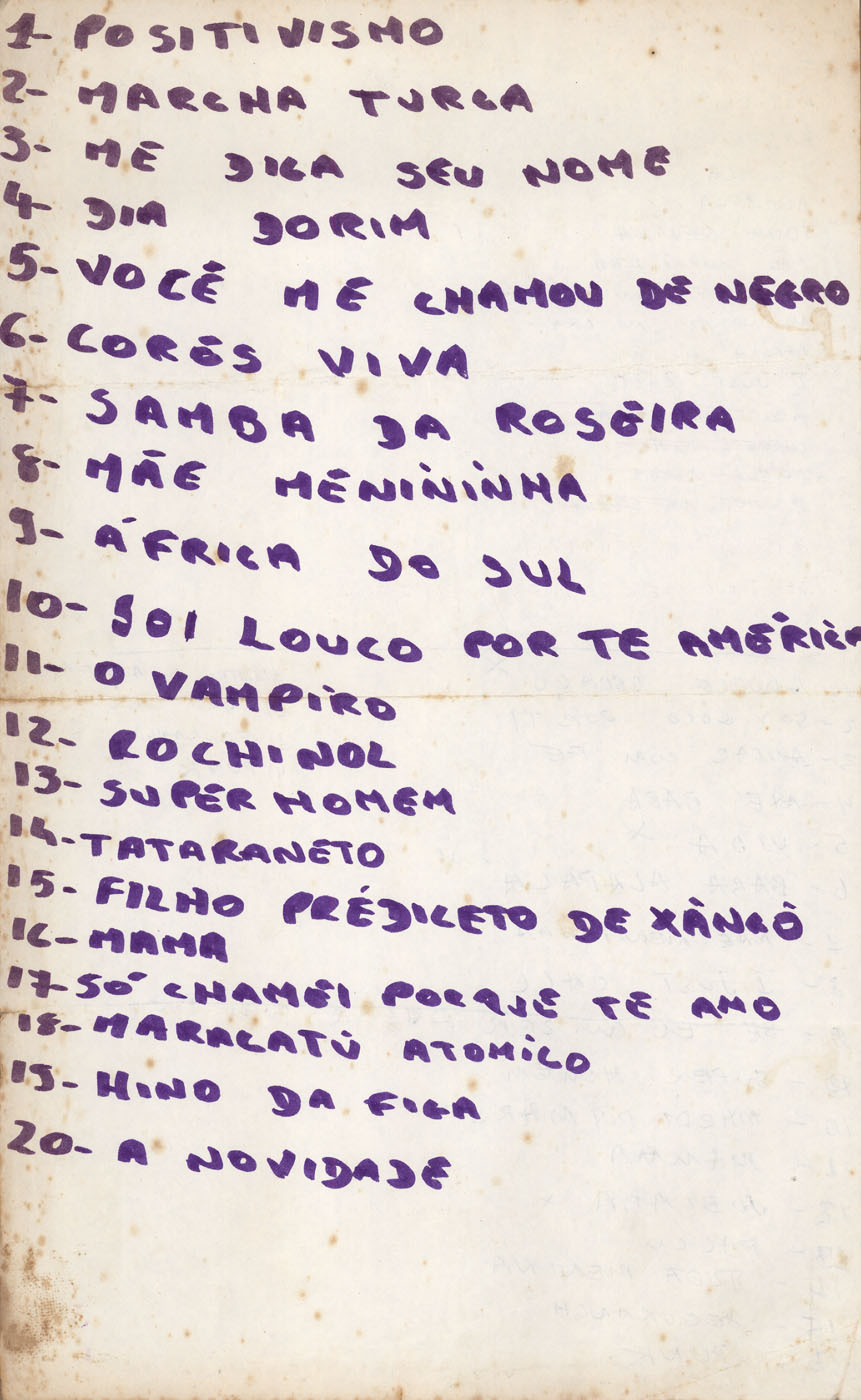 1- POSITIVISMO
2- MARCHA TURCA
3- ME DIGA SEU NOME
4- DIA DORIM
5- VOCÊ ME CHAMOU DE NEGRO
6- CORES VIVA
7- SAMBA DA ROSEIRA
8- MÃE MENININHA
9- ÁFRICA DO SUL
10- SOI LOUCO POR TE AMÉRICA
11- O VAMPIRO
12- ROCHINOL
13- SUPER HOMEM
14- TATARANETO
15- FILHO PRÉDILETO DE XÂNGÔ
16- MAMA
17- SÓ CHAMEI PORQUE TE AMO
18- MARACATÚ ATOMICO
19- HINO DA FIGA
20- A NOVIDADE